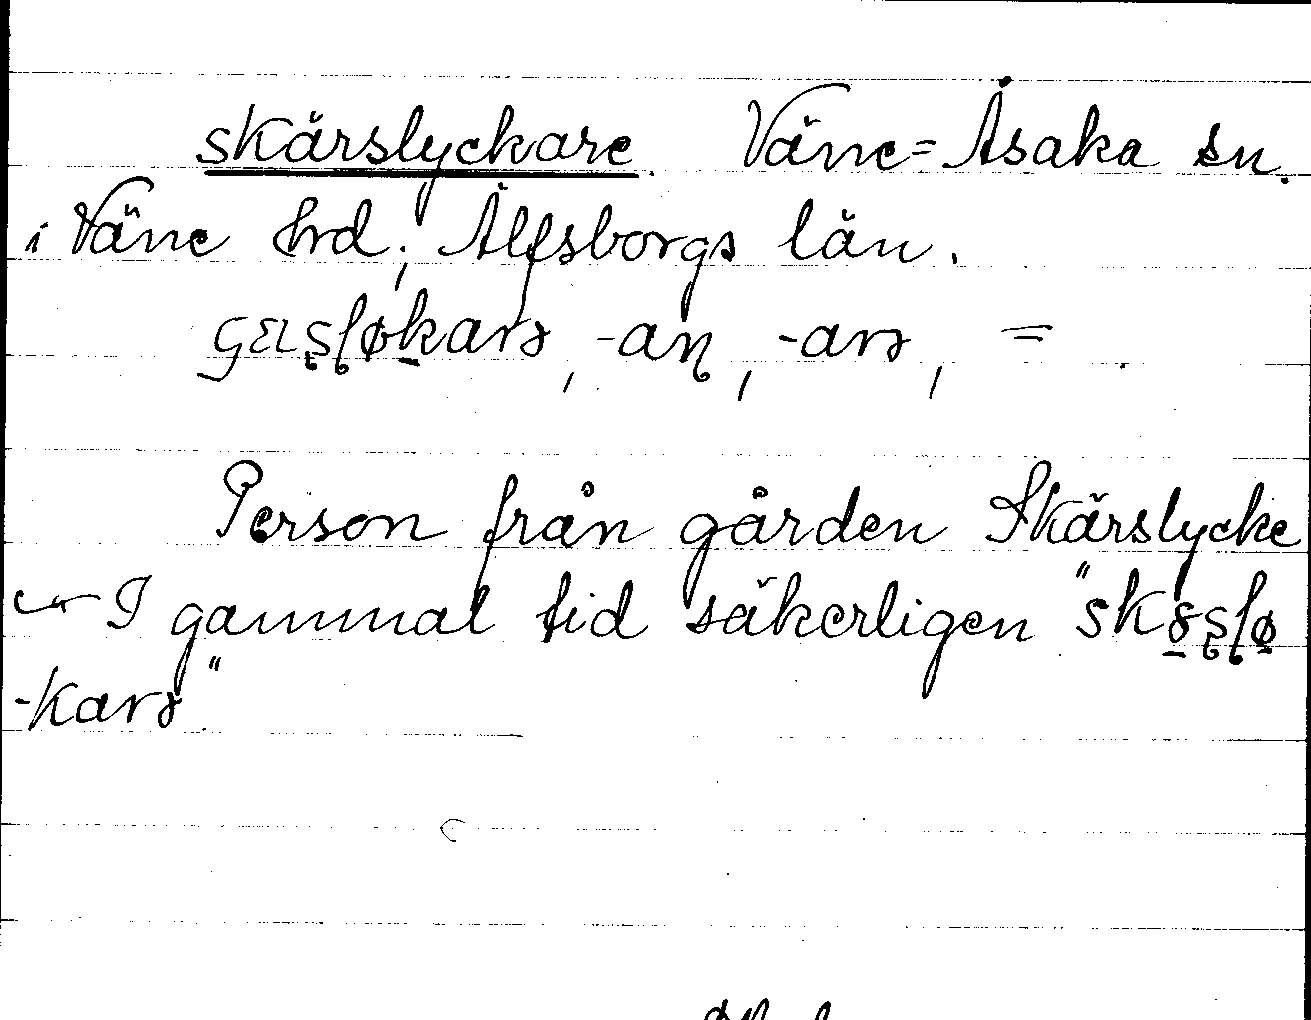 skärslyckare. Väne-Åsaka sn.
i Väne hrd, Älfsborgs län.
-an, -arə, =
Person från gården Skärslycke
I gammal tid säkerligen "
-karə"